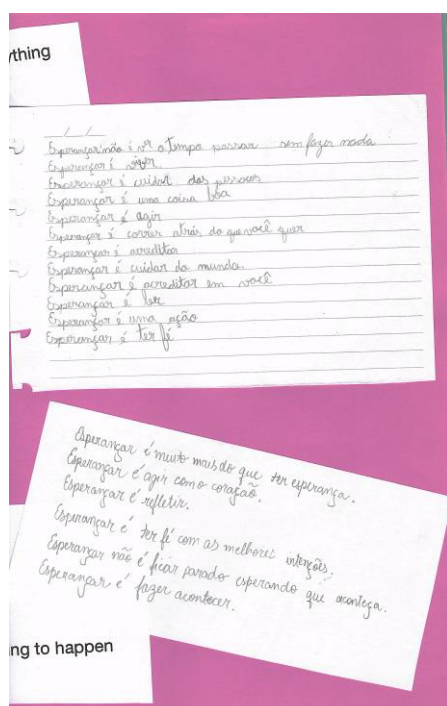 ything
Esperançar não é ver o tempo passar sem fazer nada
Esperançar é viver
Esperançar é cuidar das pessoas
Esperançar é uma coisa boa
Esperançar é agir
Esperançar é correr atrás do que você quer
Esperançar é acreditar
Esperançar é cuidar do mundo.
Esperançar é acreditar em você
Esperançar é ler
Esperançar é uma ação
Esperançar é ter fé
Esperançar é muito mais do que ter esperança.
Esperançar é agir com o coração.
Esperançar é refletir.
Esperançar é ter fé com as melhores intenções.
Esperançar não é ficar parado esperando que aconteça.
Esperançar é fazer acontecer.
ng to happen